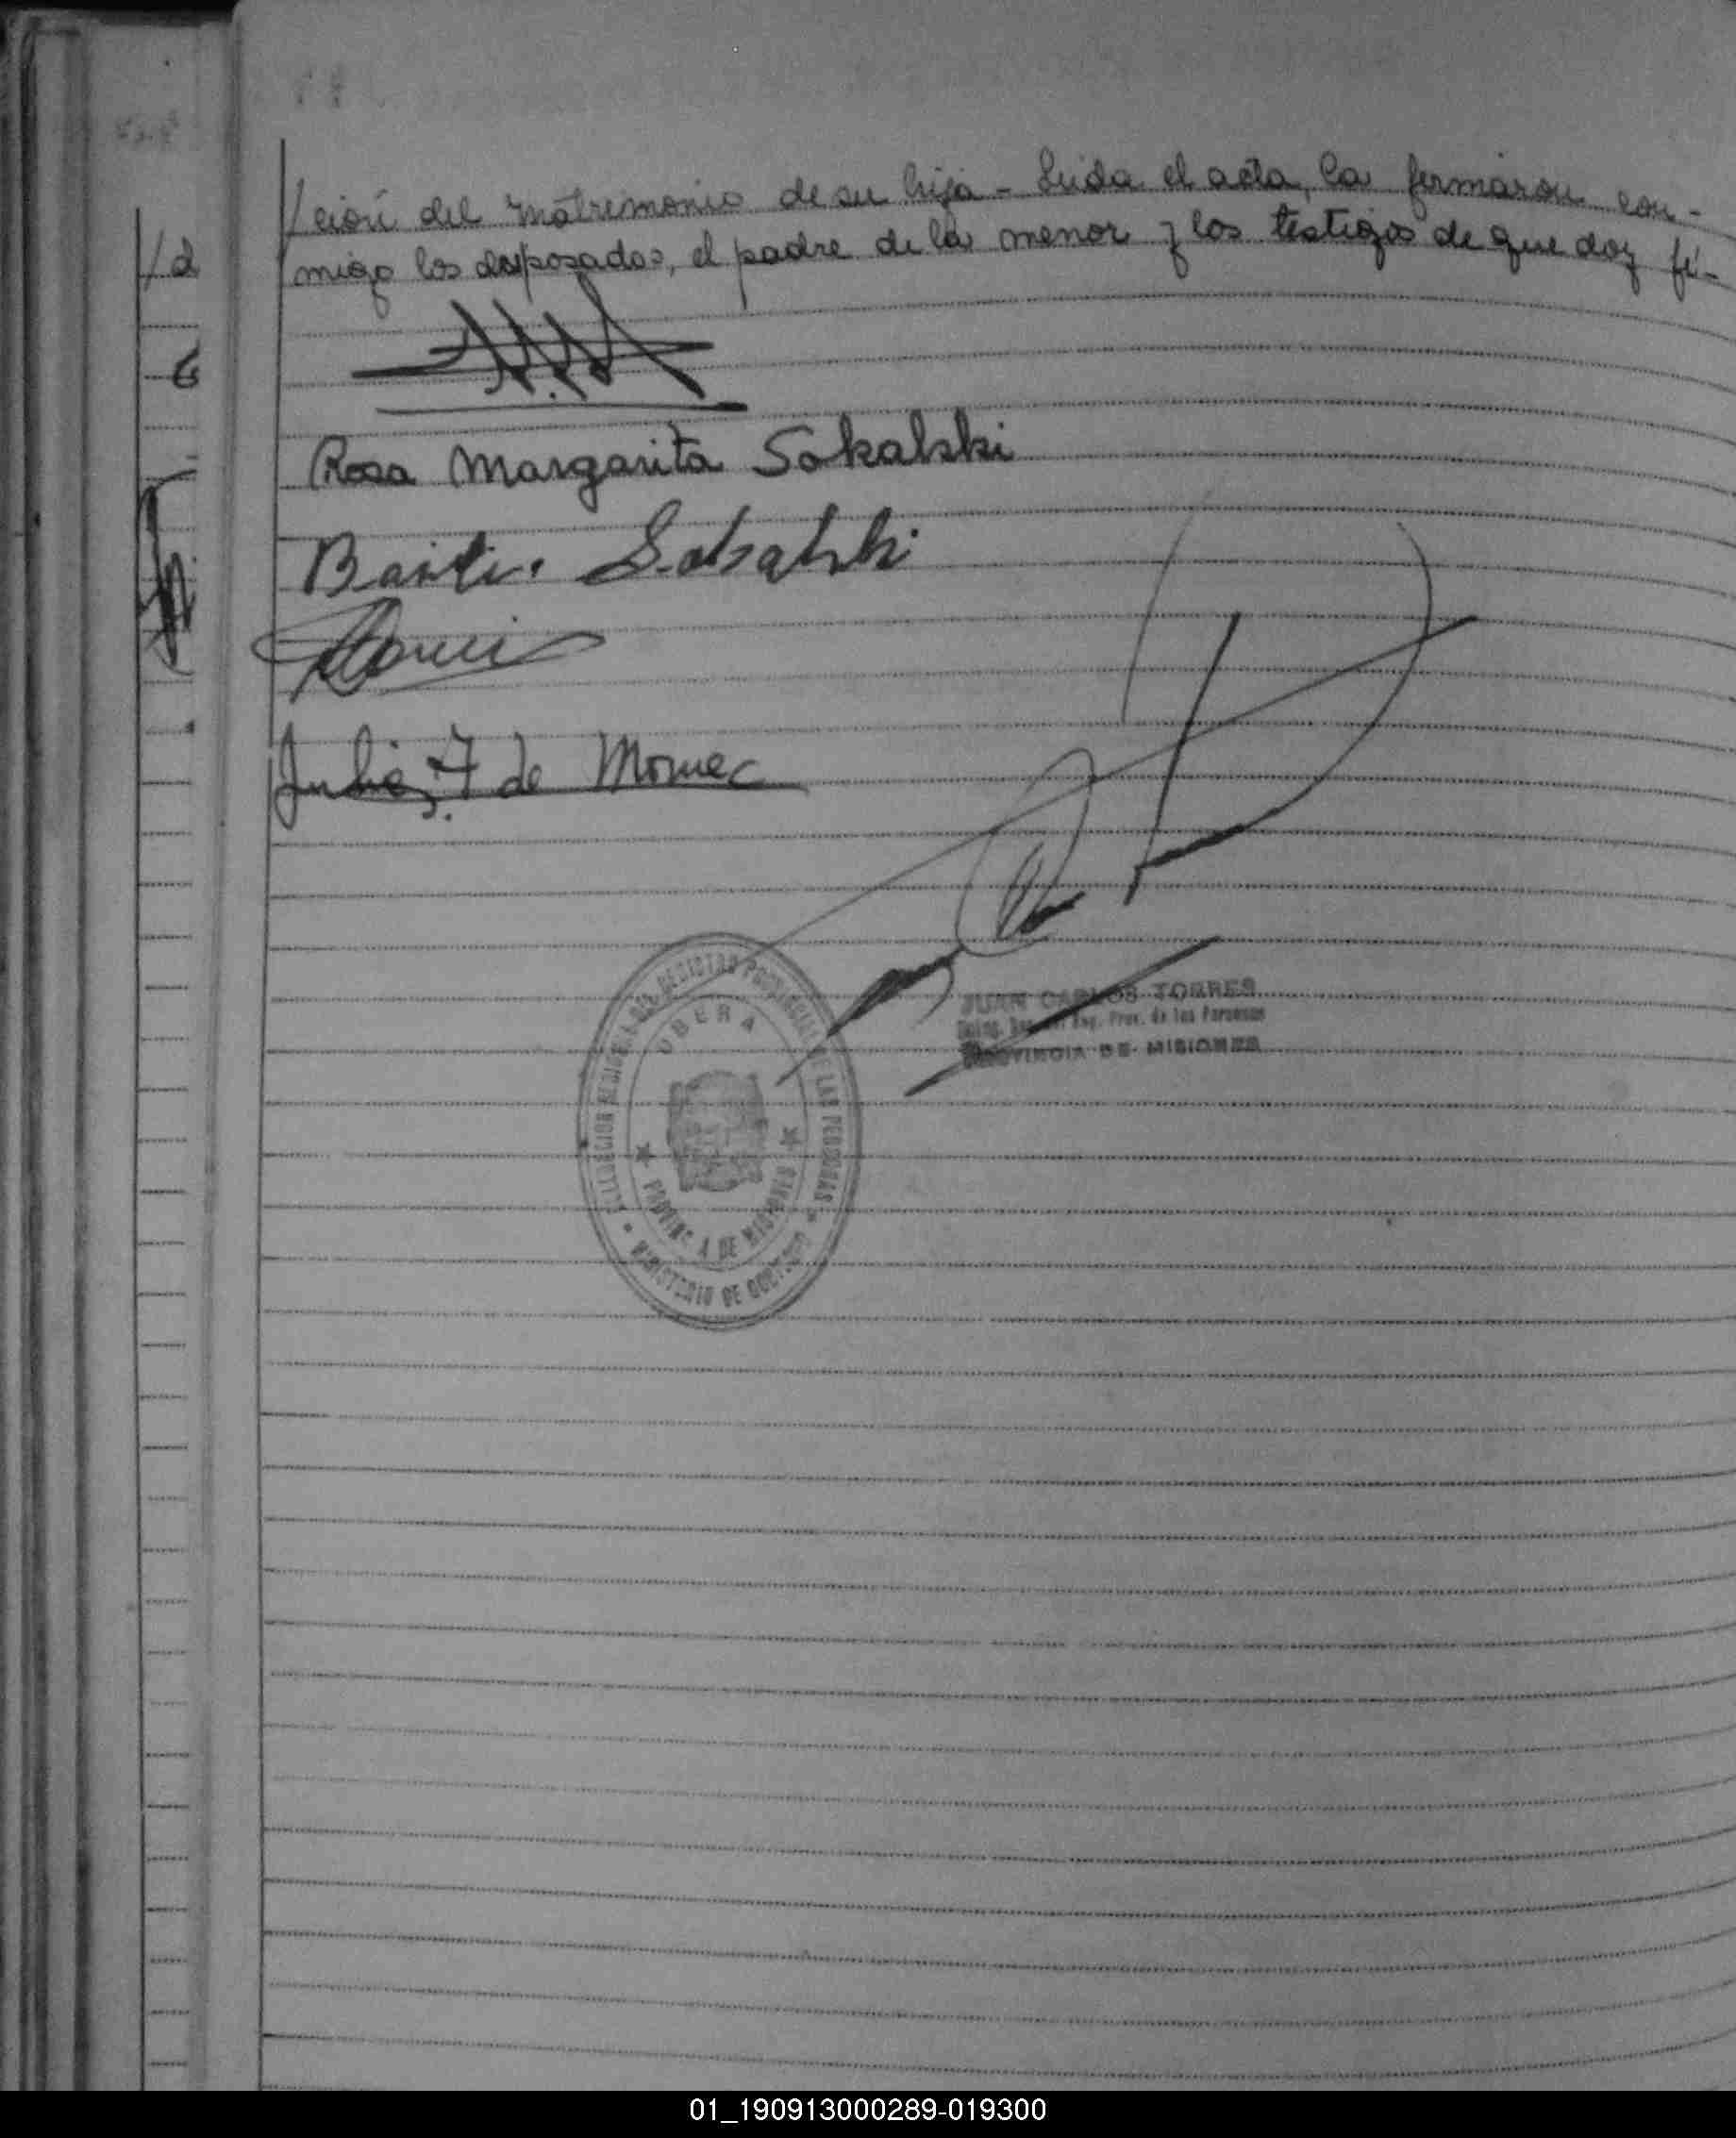 /ción del matrimonio de su hija - Leida el acta, la firmaron con-
/2
migo los desposados, el padre de la menor y los testigos de que doy fé-
6
Rosa Margarita Sokalski
Sokalski
de Momec
JUAN CARLOS TORRES
Reg. Prov. de las Personas
PROVINCIA DE MISIONES
DEL REGISTRO PROVINCIAL DE LAS PERSONAS
OBERA
PROVINCIA DE MISIONES
MINISTERIO DE GOBIERNO
01_190913000289-019300